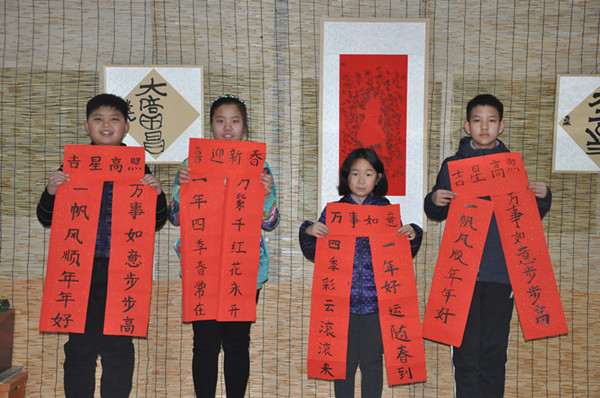 大倍中昌
吉星高照
一帆风顺年年好
万事如意步步高
喜迎新春
一年四季春常在
万紫千红花永开
万事如意
四季彩云滚滚来
一年好运随春到
吉星高照
一帆风顺年年好
万事如意步步高